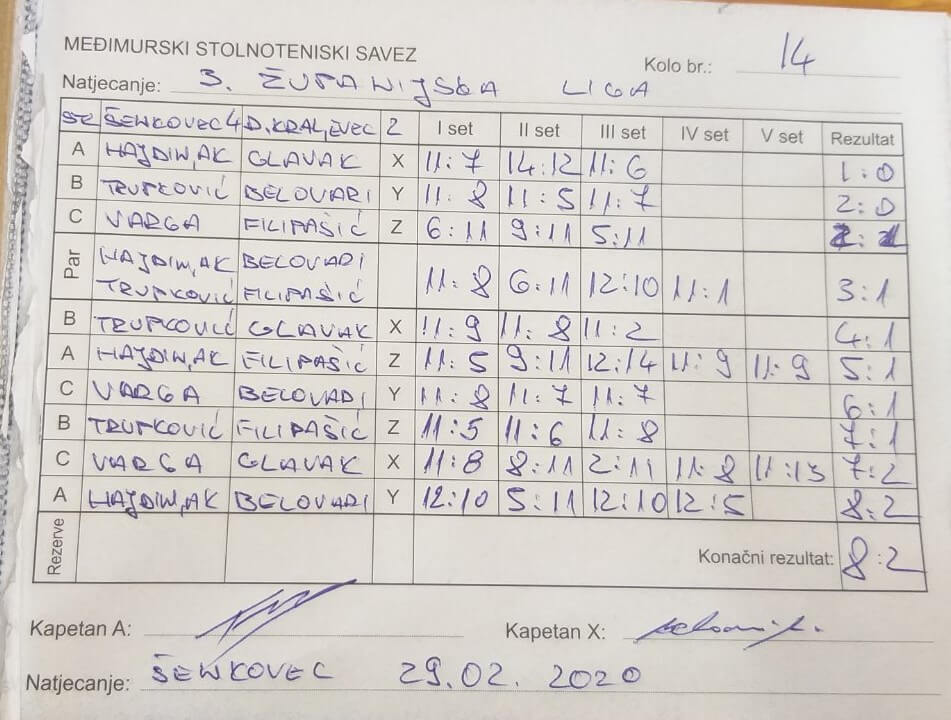 MEĐIMURSKI STOLNOTENISKI SAVEZ
Kolo br.: 14
Natjecanje: 3. ŽUPANIJSKA LIGA
ŠENKOVEC 4 D. KRALJEVEC 2 I set II set III set IV set V set Rezultat
A HAJDINJAK GLAVAK X 11:7 14:12 11:6 1:0
B TRUPKOVIĆ BELOVARI Y 11:8 11:5 11:7 2:0
C VARGA FILIPAŠIĆ Z 6:11 9:11 5:11 2:1
Par
HAJDINJAK BELOVARI
TRUPKOVIĆ FILIPAŠIĆ 11:8 6:11 12:10 11:1 3:1
B TRUPKOVIĆ GLAVAK X 11:9 11:8 11:2 4:1
A HAJDINJAK FILIPAŠIĆ Z 11:5 9:11 12:14 11:9 11:9 5:1
C VARGA BELOVARI Y 11:8 11:7 11:7 6:1
B TRUPKOVIĆ FILIPAŠIĆ Z 11:5 11:6 11:8 7:1
C VARGA GLAVAK X 11:8 8:11 2:11 11:8 11:13 7:2
A HAJDINJAK BELOVARI Y 12:10 5:11 12:10 12:5 8:2
Rezerve Konačni rezultat: 8:2
Kapetan A: Kapetan X:
Natjecanje: ŠENKOVEC 29.02. 2020